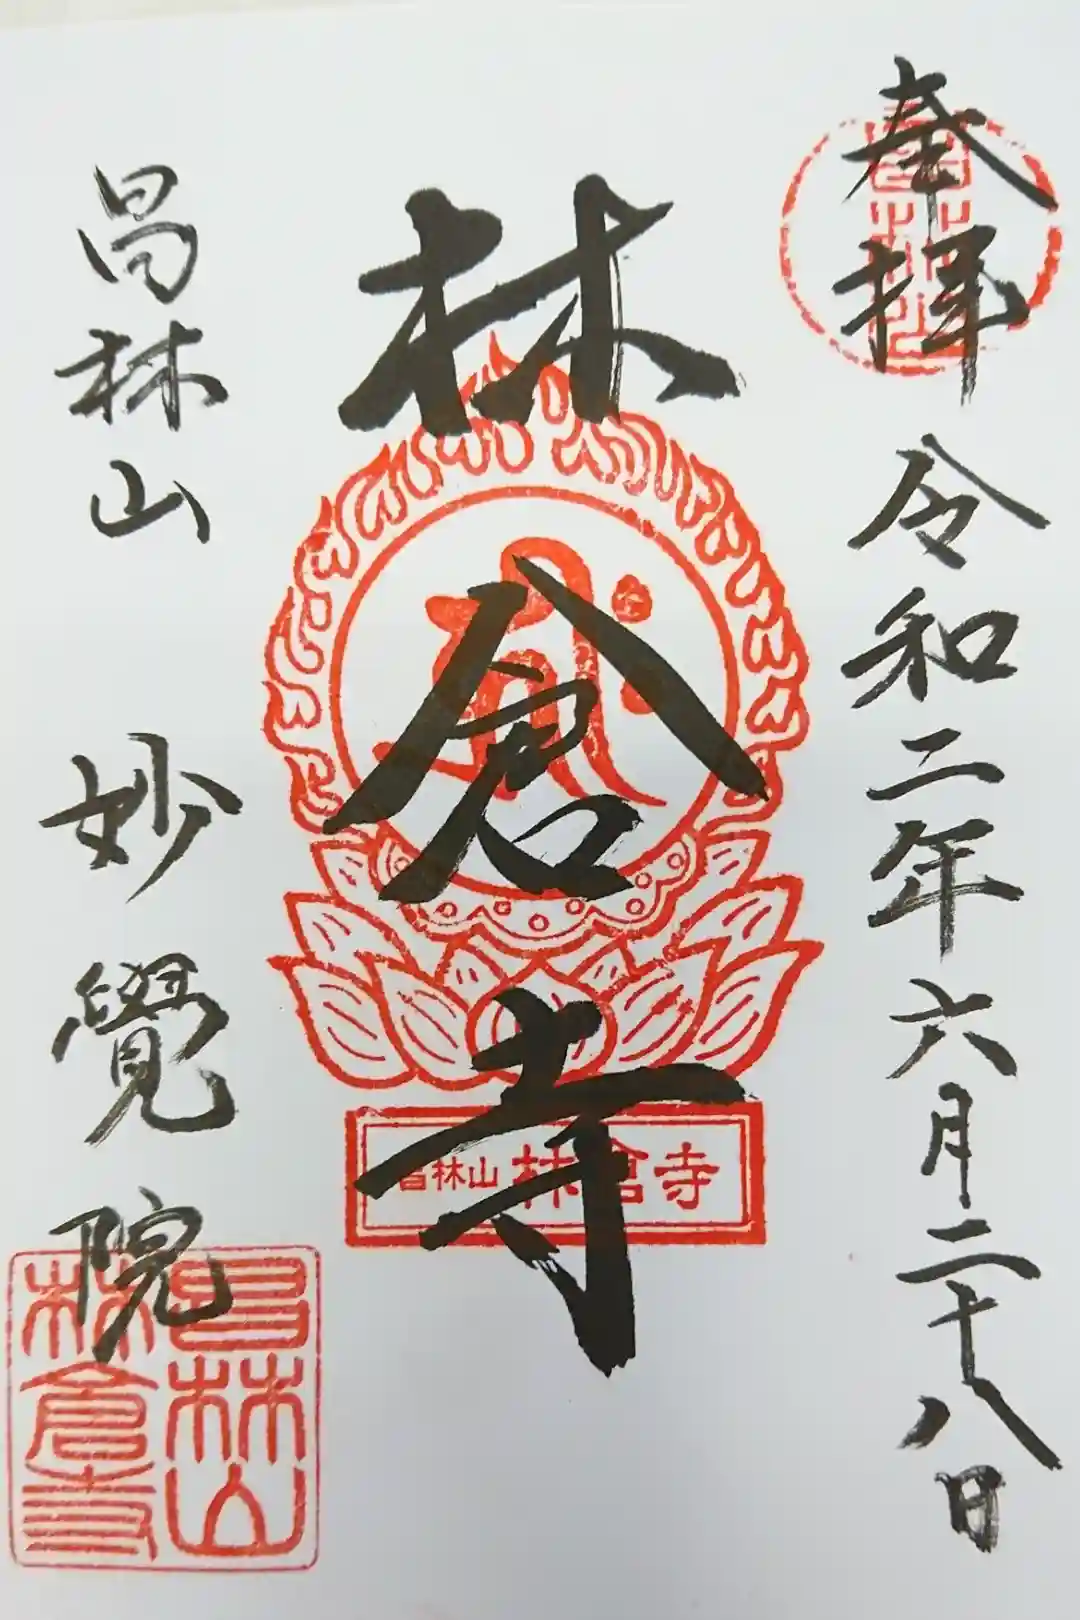 奉拝 令和二年六月二十八日
昌林山
林倉寺
昌林山 林倉寺
昌林山 妙覺院
昌林山
林倉寺